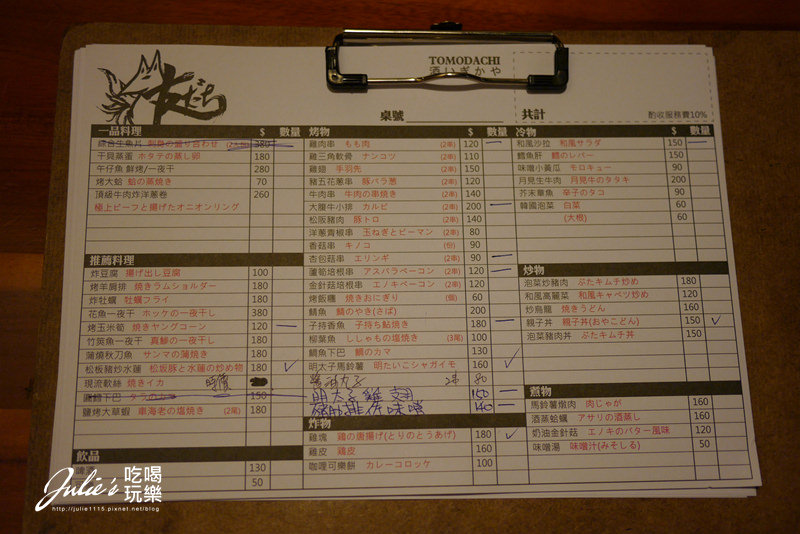 TOMODACHI
酒いざかや
桌號
共計
酌收服務費10%
一品料理 $ 數量
綜合生魚片 刺身の盛り合わせ 380
干貝蒸蛋 ホタテの蒸し卵 180
午仔魚 鮮烤/一夜干 280
烤大蛤 蛤の蒸焼き 70
頂級牛肉炸洋蔥卷 260
極上ビーフと揚げたオニオンリング
推薦料理
炸豆腐 揚げ出し豆腐 100
烤羊肩排 焼きラムショルダー 180
炸牡蠣 牡蠣フライ 180
花魚一夜干 ホッケの一夜干し 380
烤玉米筍 焼きヤングコーン 120
竹筴魚一夜干 真鯵の一夜干し 180
蒲燒秋刀魚 サンマの蒲焼き 180
松板豬炒水蓮 松坂豚と水蓮の炒め物 180
現流軟絲 焼きイカ 時價
圓鱈下巴 150
鹽烤大草蝦 車海老の塩焼き (2尾) 180
飲品
130
50
烤物 $ 數量
雞肉串 もも肉 (2串) 120
雞三角軟骨 ナンコツ (2串) 110
雞翅 手羽先 (2串) 150
豬五花蔥串 豚バラ葱 (2串) 120
牛肉串 牛肉の串焼き (2串) 140
大腹牛小排 カルビ (2串) 200
松阪豬肉 豚トロ (2串) 140
洋蔥青椒串 玉ねぎとピーマン (2串) 90
香菇串 キノコ (份) 90
杏包菇串 エリンギ (2串) 90
蘆筍培根串 アスパラベーコン (2串) 120
金針菇培根串 エノキベーコン (2串) 120
烤飯糰 焼きおにぎり (個) 60
鯖魚 鯖のやき(さば) 200
子持香魚 子持ち鮎焼き 180
柳葉魚 ししゃもの塩焼き (3尾) 100
鯛魚下巴 鯛のカマ 130
明太子馬鈴薯 明たいこシャガイモ 160
醬油丸子 2串 80
明太子雞翅 150
豬肋排佐味噌 140
炸物
雞塊 鶏の唐揚げ(とりのとうあげ) 180
雞皮 鶏皮 160
咖哩可樂餅 カレーコロッケ 100
冷物 $ 數量
和風沙拉 和風サラダ 150
鱈魚肝 鱈のレバー 150
味噌小黃瓜 モロキュー 90
月見生牛肉 月見牛のタタキ 200
芥末章魚 辛子のタコ 90
韓國泡菜 白菜 60
(大根) 60
炒物
泡菜炒豬肉 ぶたキムチ炒め 180
和風高麗菜 和風キャベツ炒め 120
炒烏龍 焼きうどん 160
親子丼 親子丼(おやこどん) 150
泡菜豬肉丼 ぶたキムチ丼 150
煮物
馬鈴薯燉肉 肉じゃが 160
酒蒸蛤蠣 アサリの酒蒸し 160
奶油金針菇 エノキのバター風味 120
味噌湯 味噌汁(みそしる) 50
Julie's 吃喝玩樂
http://julie1115.pixnet.net/blog